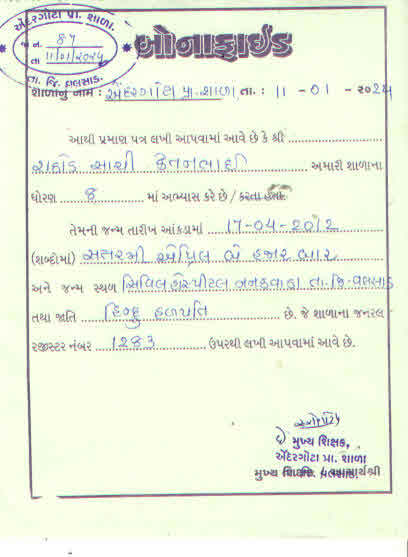 એંદરગોટા પ્રા. શાળા.
જા.નં. 87
તા 11/01/2024
તા. જિ. વલસાડ.
બોનાફાઈડ
શાળાનું નામ : એંદરગોટા પ્રા. શાળા, તા. : 11 - 01 - ૨૦24
આથી પ્રમાણ પત્ર લખી આપવામાં આવે છે કે શ્રી
રાઠોડ સાચી કેતનભાઈ અમારી શાળાના
ધોરણ 8 માં અભ્યાસ કરે છે / કરતા હતા.
તેમની જન્મ તારીખ આંકડામાં 17-04-2012
(શબ્દોમાં) સત્તરમી એપ્રિલ બે હજાર બાર
અને જન્મ સ્થળ સિવિલ હોસ્પીટલ નનકવાડા તા.જિ-વલસાડ
તથા જાતિ હિન્દુ હળપતિ છે. જે શાળાના જનરલ
રજીસ્ટર નંબર 1283 ઉપરથી લખી આપવામાં આવે છે.
મુખ્ય શિક્ષક,
એંદરગોટા પ્રા. શાળા
મુખ્ય શિક્ષક / આચાર્યશ્રી